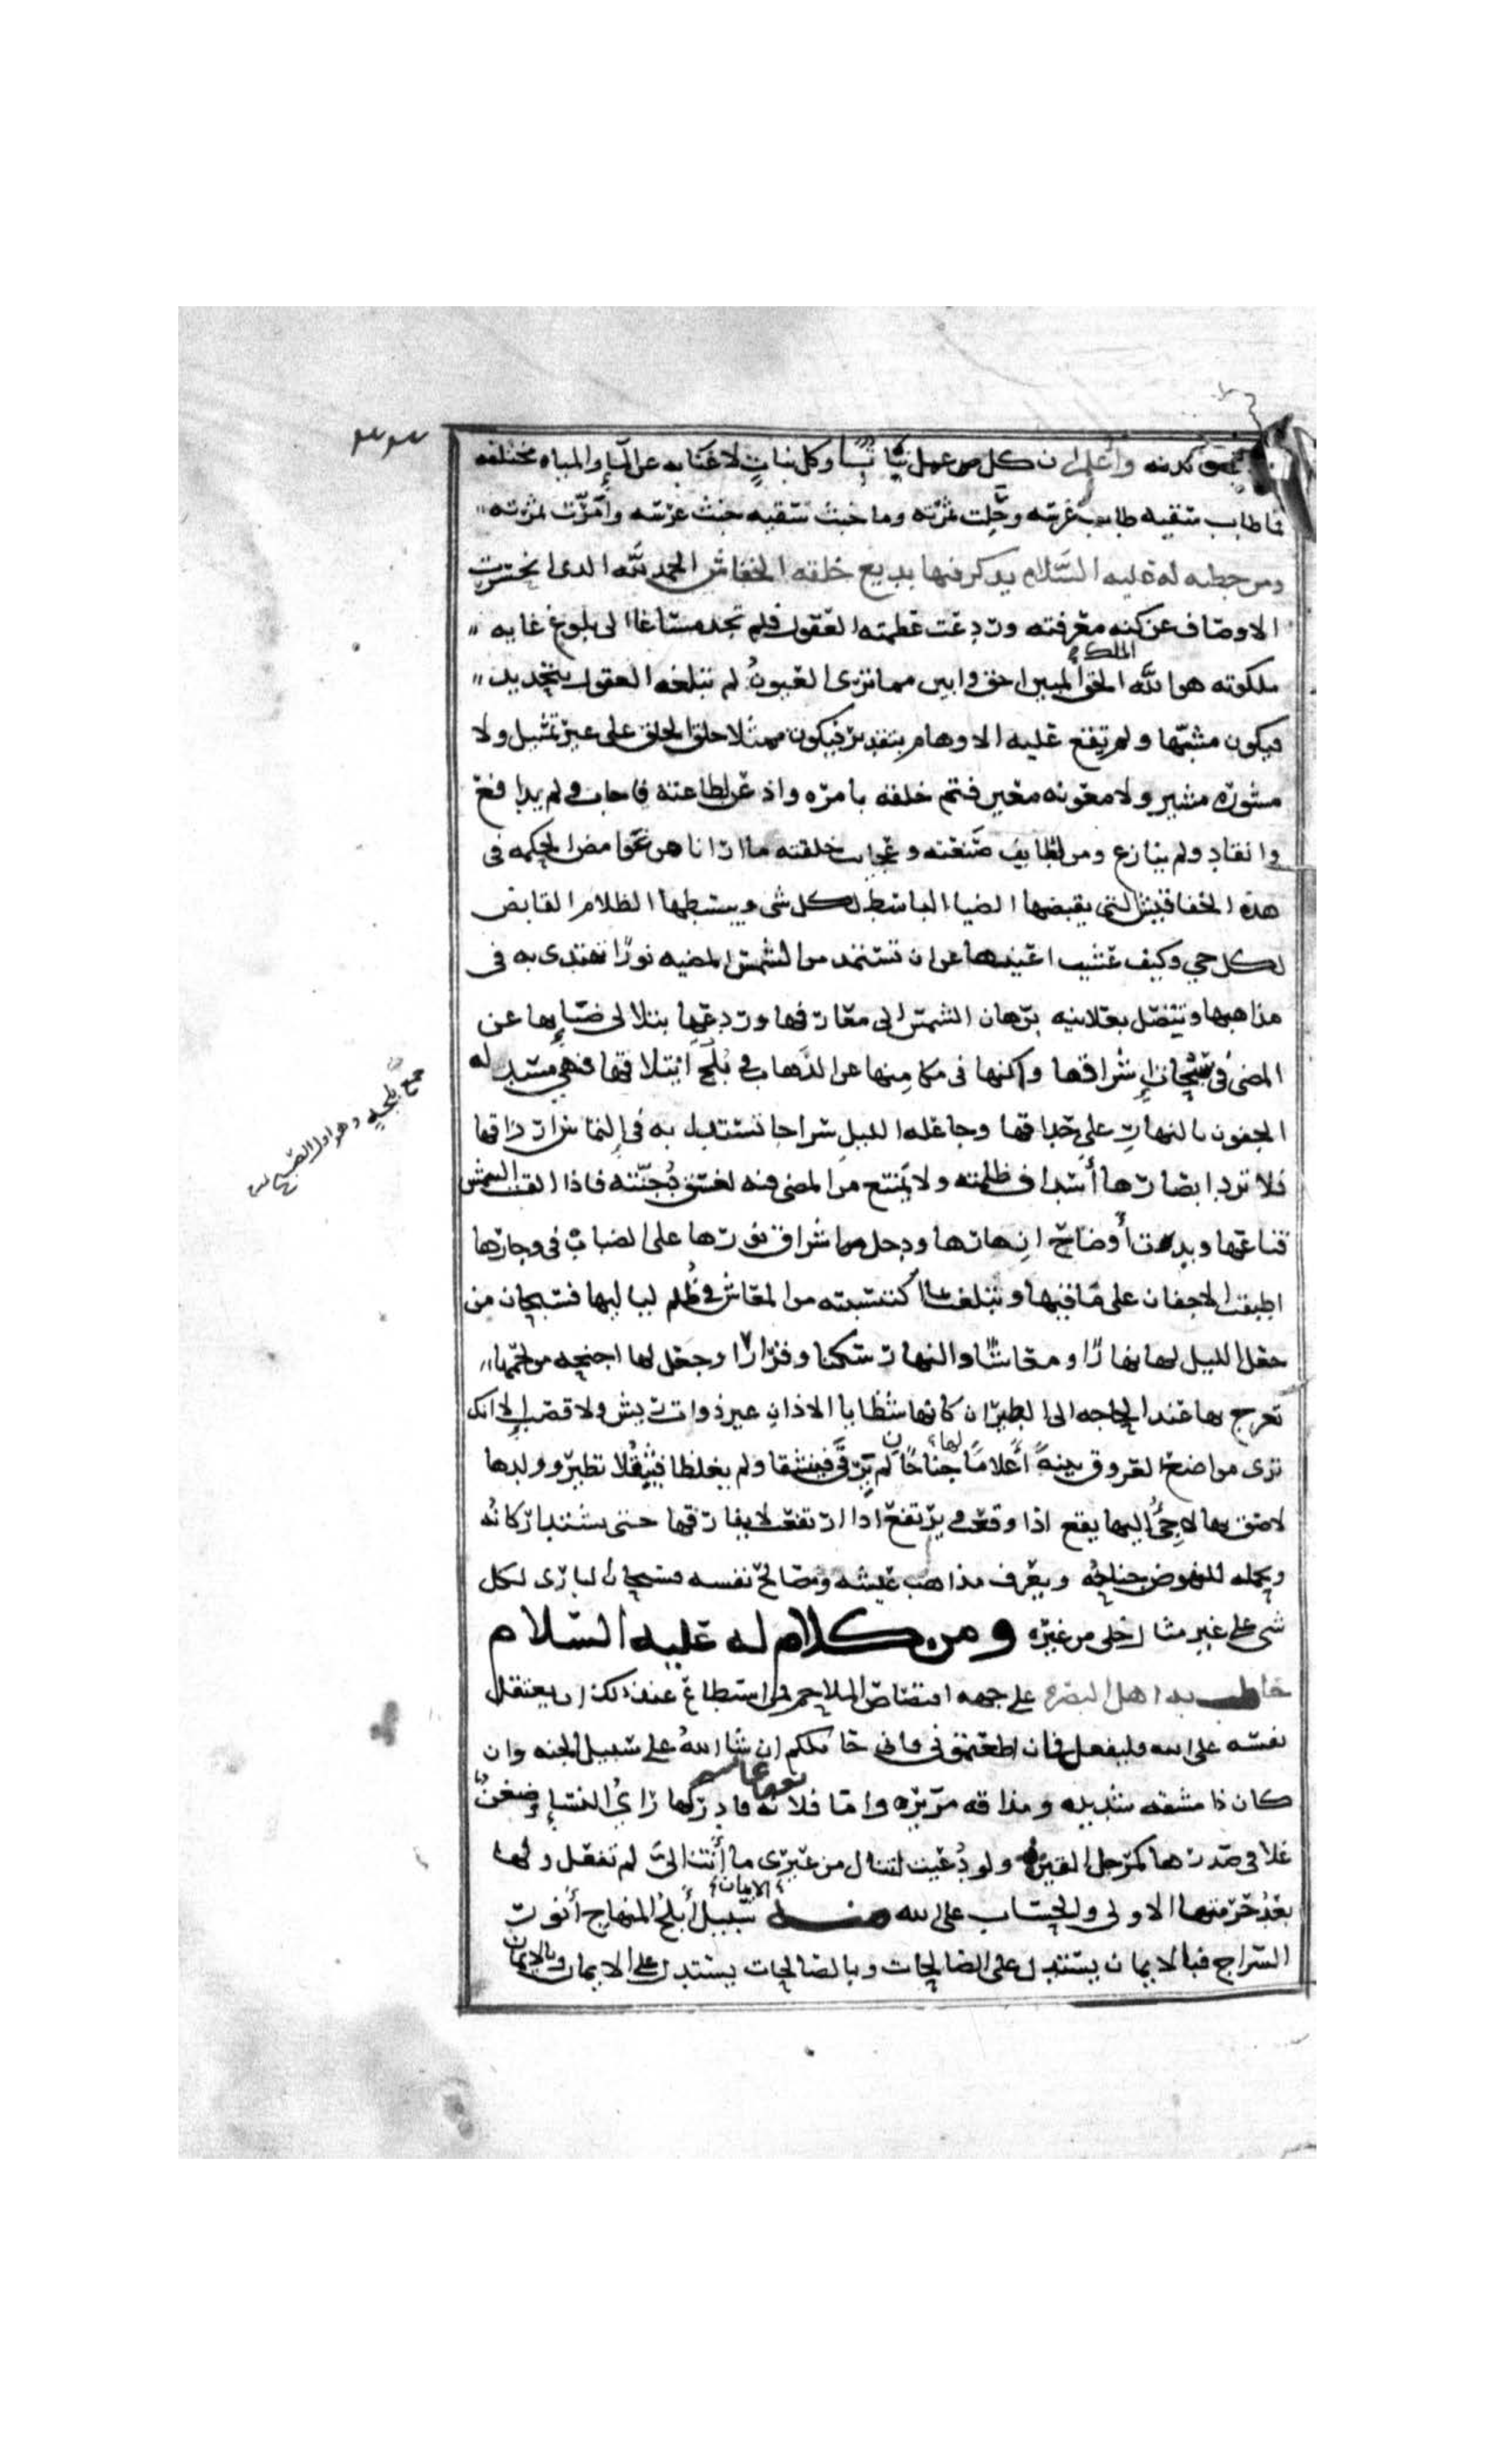 واعلم ان كل عمل نباتا وكل نبات لا غنا به عن الماء والمياه مختلفه
فما طاب سقيه طاب غرسه وحلت ثمرته وما خبث سقيه خبث غرسه وامرّت ثمرته
ومن خطبه له عليه السّلام يذكر فيها بديع خلقه الخفاش الحمد للّه الذى انحسرت
الاوصاف عن كنه معرفته وردعت عظمته العقول فلم تجد مساغا الى بلوغ غايه
ملكوته هو اللّه الملك الحق المبين احق وابين مما ترى العيونُ لم تبلغه العقول بتحديد
فيكون مشبّها ولم تقع عليه الاوهام بتقدير فيكون ممثلا خلق الخلق على غير تمثيل ولا
مشوره مشير ولا معونه معين فتم خلقه بامره واذعن لطاعته فاجاب ولم يدافع
وانقاد ولم ينازع ومن لطايف صنعته وعجايب خلقته ما ارانا من غوامض الحكمه فى
هذه الخفافيش التى يقبضها الضيا الباسط لكل شى ويبسطها الظلام القابض
لكل حي وكيف عشيت اعينها عن ان تستمد من الشمس المضيه نورًا تهتدى به فى
مذاهبها وتتصل بعلانيه برهان الشمس الى معارفها وردعها بتلالى ضيائها عن
المضى فى سبحات إشراقها واكنها فى مكامنها عن الذهاب في بُلَج ائتلاقها فهي مسدله
الجفون بالنهار على حداقها وجاعله الليل سراجا تستدل به فى التماس ارزاقها
فلا ترد ابصارها أسداف ظلمته ولا تمتنع من المضى فيه لغسق دُجنّته فاذا القت الشمس
قناعها وبدت أوضاح انهارها ودخل من اشراق نورها على الضباب فى وجارها
اطبقت الاجفان على مآقيها وتبلغت بما اكتسبته من المعاش في ظُلم لياليها فسبحان من
جعل الليل لها نهارًا ومعاشًا والنهار سكنا وقرارًا وجعل لها اجنحه من لحمها
تعرج بها عند الحاجه الى الطيران كانها شظايا الاذان غير ذوات ريش ولا قصب إلا انك
ترى مواضع العروق بينهً أعلامًا لها جناحان لم يَرقَّا فينشقا ولم يغلظا فيَثقُلا تطير وولدها
لاصق بها لاجئٌ اليها يقع اذا وقعت ويرتفع اذا ارتفعت لا يفارقها حتى تشتد اركانه
ويحمله للنهوض جناحُه ويعرف مذاهب عيشه ومصالح نفسه فسبحان البارى لكل
شى على غير مثال خلى من غيره ومن كلام له عليه السّلام
خاطب به اهل البصره على جهه اقتصاص الملاحم فمن استطاع عند ذلك ان يعتقل
نفسه على الله فليفعل فان اطعتمونى فانى حاملكم ان شا اللهُ على سبيل الجنه وان
كان ذا مشقه شديده ومذاقه مريره واما فلانه فادركها رايُ النسإ وضغنٌ
يعنى عايشه
غلا فى صدرها كمرجل القين ولو دُعيت لتنال من غيرى ما أتت اليَّ لم تفعل ولها
بعدُ حرمتها الاولى والحساب على الله منـه الايمان سبيل أبلجُ المنهاج أنور
السّراج فبالايمان يستدل على الصالحات وبالصالحات يستدل على الايمان وبالايمان
جمع بلجه وهو اول الصبح